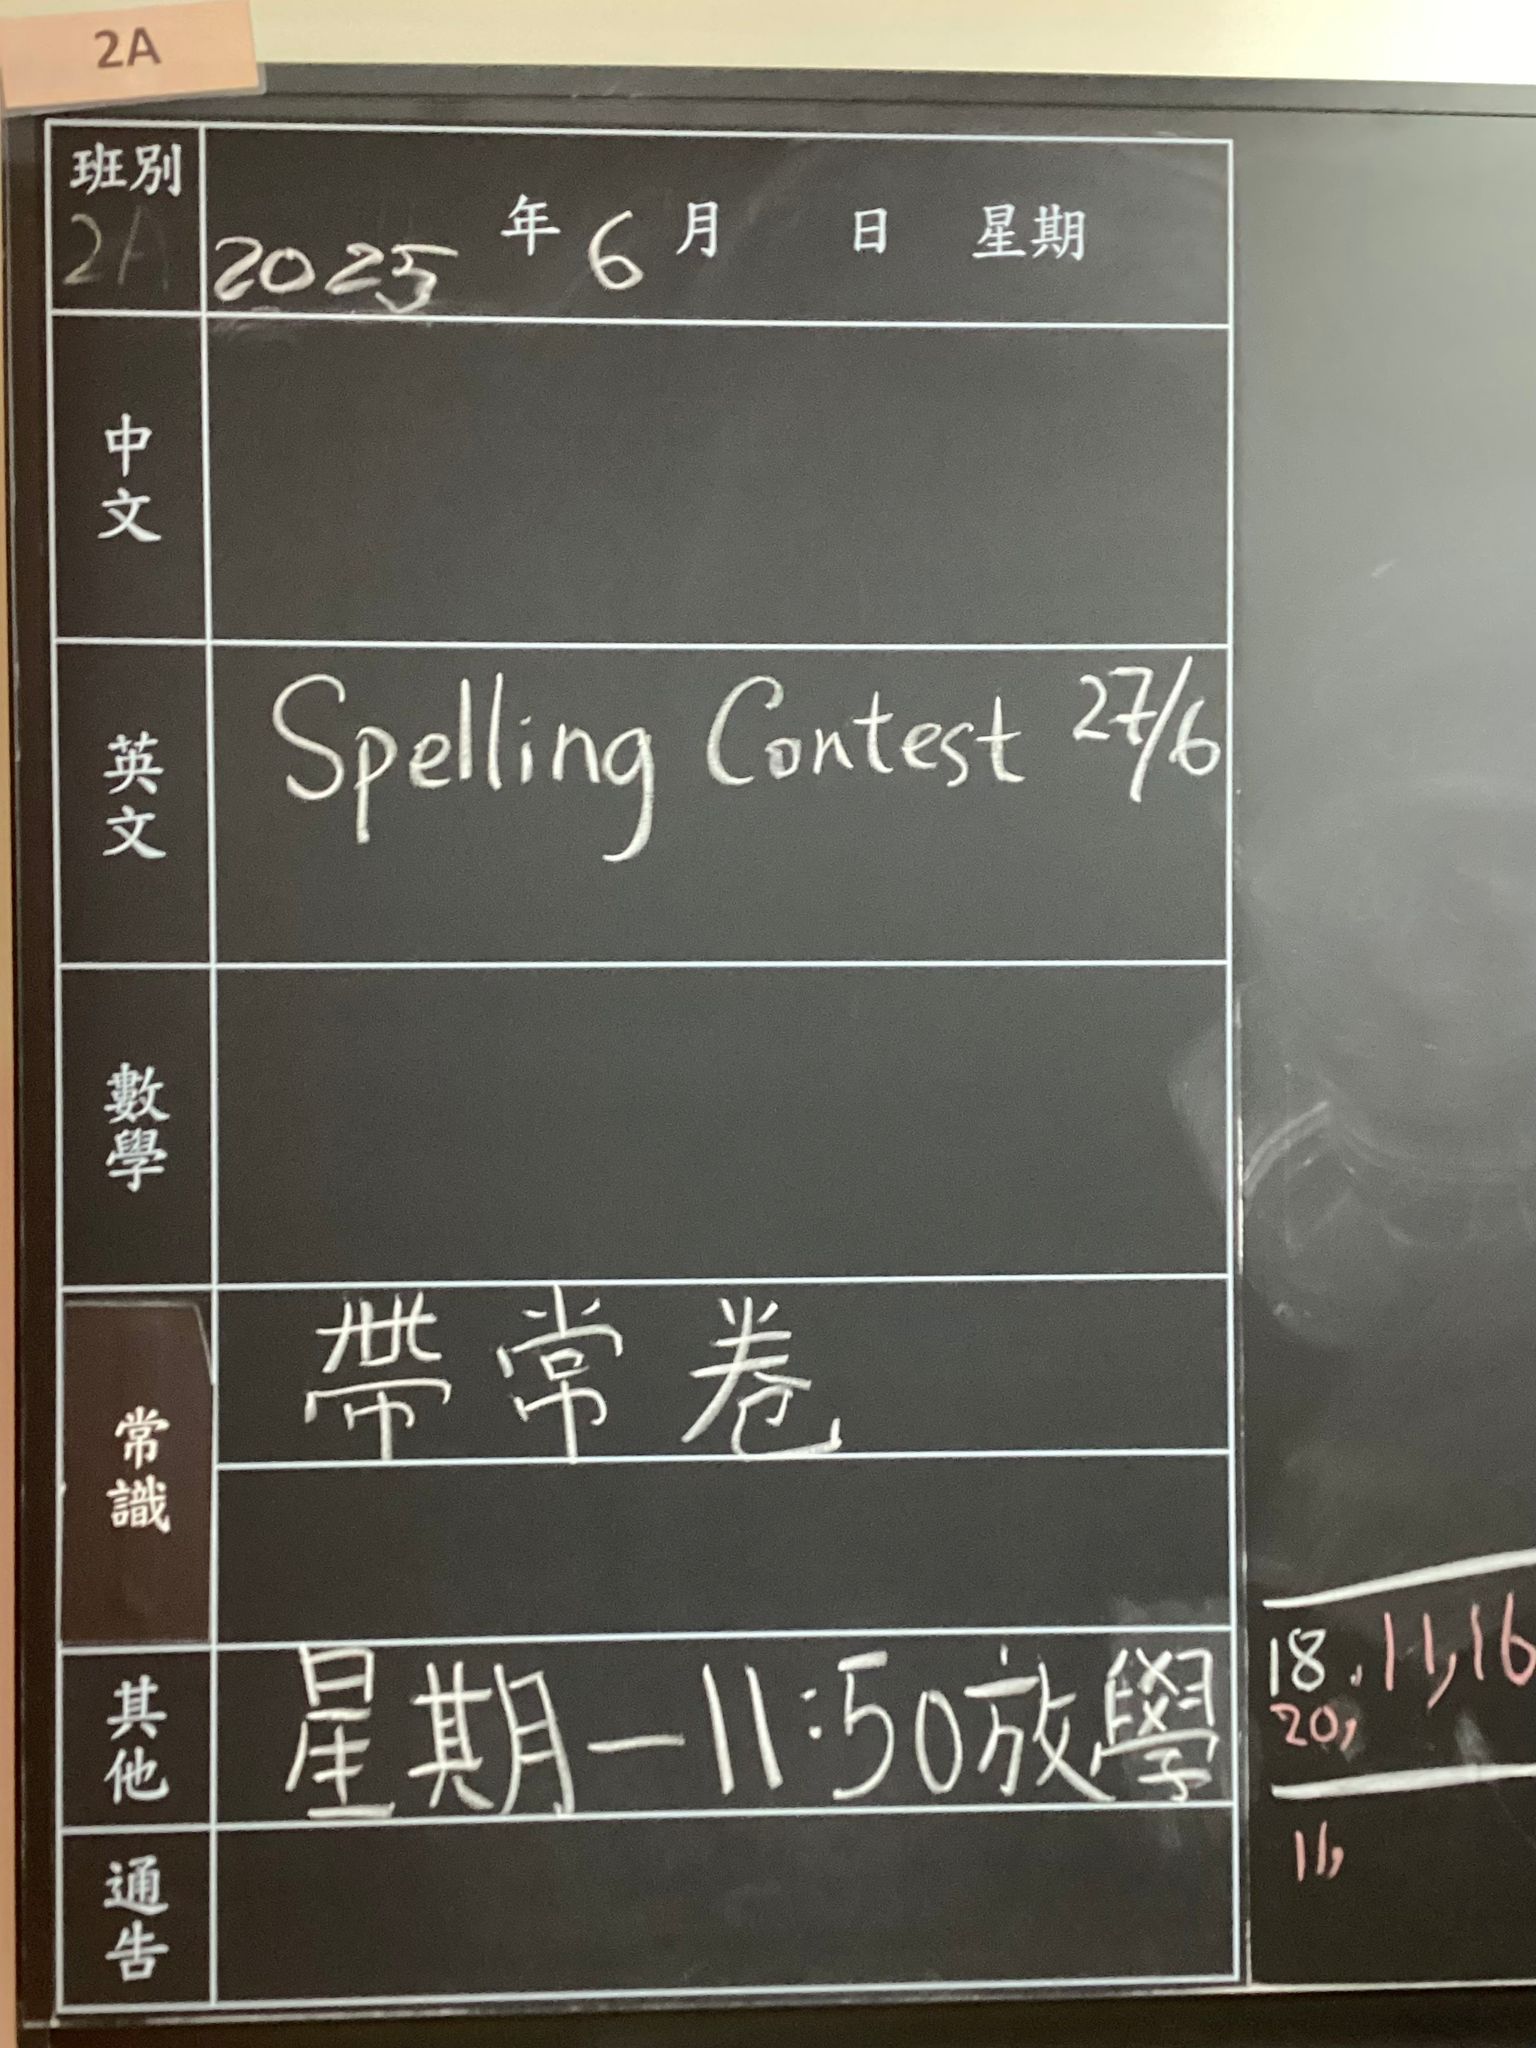 2A
班別
2A
2025 年 6 月 日 星期
中文
英文
Spelling Contest 27/6
數學
常識
帶常卷
其他
星期一11:50放學
通告
18, 11, 16
20,
11,